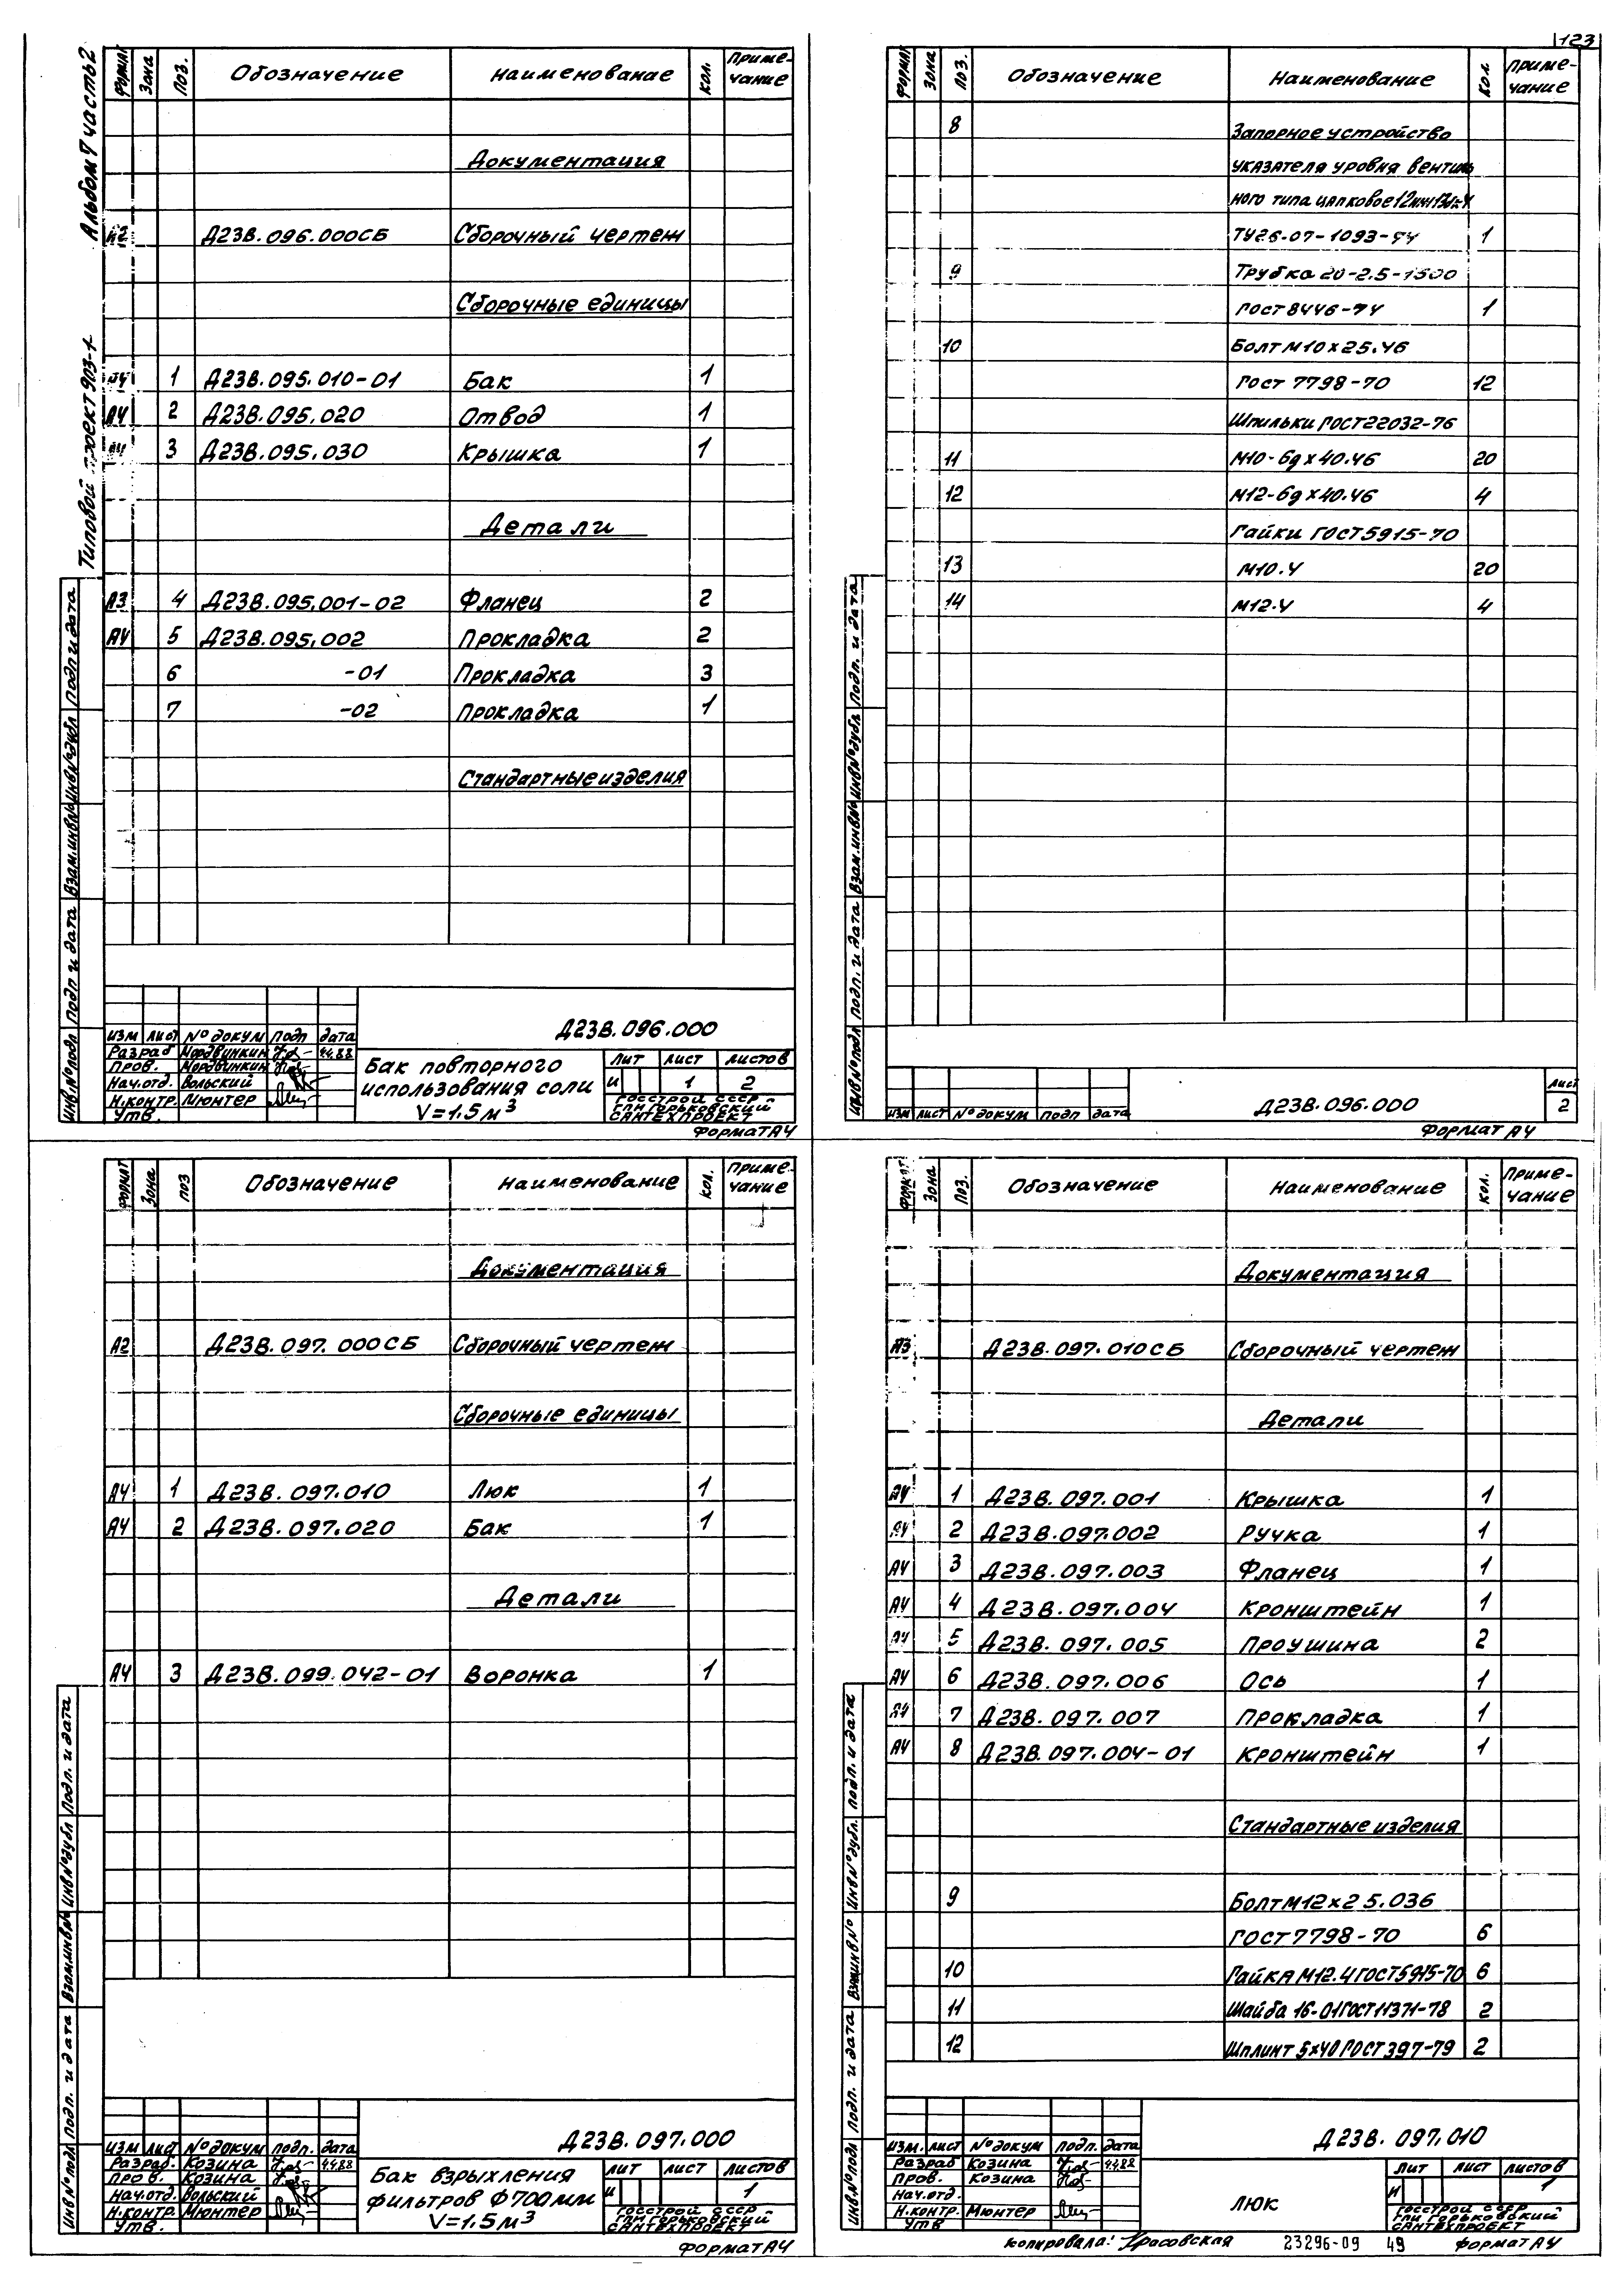 123
Альбом V часть 2
Типовой проект 903-1-
Формат Зона Поз. Обозначение Наименование Кол. Приме-
чание
Документация
А2 Д23В.096.000СБ Сборочный чертеж
Сборочные единицы
А4 1 Д23В.095.010-01 Бак 1
А4 2 Д23В.095.020 Отвод 1
А4 3 Д23В.095.030 Крышка 1
Детали
А3 4 Д23В.095.001-02 Фланец 2
А4 5 Д23В.095.002 Прокладка 2
6 -01 Прокладка 3
7 -02 Прокладка 1
Стандартные изделия
Инв.№подл Подп и дата Взам.инв№ Инв№дубл Подп и дата
Изм Лист №докум Подп Дата
Разраб Мордвинкин 4.4.88
Пров. Мордвинкин
Нач.отд. Вольский
Н.контр. Мюнтер
Утв.
Д23В.096.000
Бак повторного
использования соли
V=1.5м³
Лит Лист Листов
И 1 2
Госстрой СССР
ГПИ Горьковский
Сантехпроект
Формат А4
Формат Зона Поз. Обозначение Наименование Кол Приме-
чание
8 Запорное устройство
указателя уровня вентиль
ного типа цапковое
ТУ26-07-1093-74 1
9 Трубка 20-2.5-1500
Гост 8446-74 1
10 Болт М10х25.46
Гост 7798-70 12
Шпильки ГОСТ22032-76
11 М10-6gх40.46 20
12 М12-6gх40.46 4
Гайки ГОСТ5915-70
13 М10.4 20
14 М12.4 4
Инв№подл Подп. и дата Взам.инв№ Инв№дубл Подп. и дата
Изм Лист №докум Подп Дата
Д23В.096.000
Лист
2
Формат А4
Формат Зона Поз Обозначение Наименование Кол. Приме-
чание
Документация
А2 Д23В.097.000СБ Сборочный чертеж
Сборочные единицы
А4 1 Д23В.097.010 Люк 1
А4 2 Д23В.097.020 Бак 1
Детали
А4 3 Д23В.099.042-01 Воронка 1
Инв№подл Подп. и дата Взам.инв№ Инв№дубл Подп. и дата
Изм Лист №докум Подп. Дата
Разраб. Козина 4.4.88
Пров. Козина
Нач.отд. Вольский
Н.контр. Мюнтер
Утв.
Д23В.097.000
Бак взрыхления
фильтров Ф700мм
V=1.5м³
Лит Лист Листов
И 1
Госстрой СССР
ГПИ Горьковский
Сантехпроект
Формат А4
Формат Зона Поз. Обозначение Наименование Кол. Приме-
чание
Документация
А3 Д23В.097.010СБ Сборочный чертеж
Детали
А4 1 Д23В.097.001 Крышка 1
А4 2 Д23В.097.002 Ручка 1
А4 3 Д23В.097.003 Фланец 1
А4 4 Д23В.097.004 Кронштейн 1
А4 5 Д23В.097.005 Проушина 2
А4 6 Д23В.097.006 Ось 1
А4 7 Д23В.097.007 Прокладка 1
А4 8 Д23В.097.004-01 Кронштейн 1
Стандартные изделия
9 Болт М12х25.036
ГОСТ7798-70 6
10 Гайка М12.4 ГОСТ5915-70 6
11 Шайба 16-01 ГОСТ11371-78 2
12 Шплинт 5х40 ГОСТ397-79 2
Инв№подл Подп. и дата Взам.инв№ Инв№дубл. Подп. и дата
Изм. Лист №докум Подп. Дата
Разраб Козина 4.4.88
Пров. Козина
Нач.отд.
Н.контр. Мюнтер
Утв
Д23В.097.010
Люк
Лит Лист Листов
И 1
Госстрой СССР
ГПИ Горьковский
Сантехпроект
Копировала: Красовская 23296-09 49 Формат А4